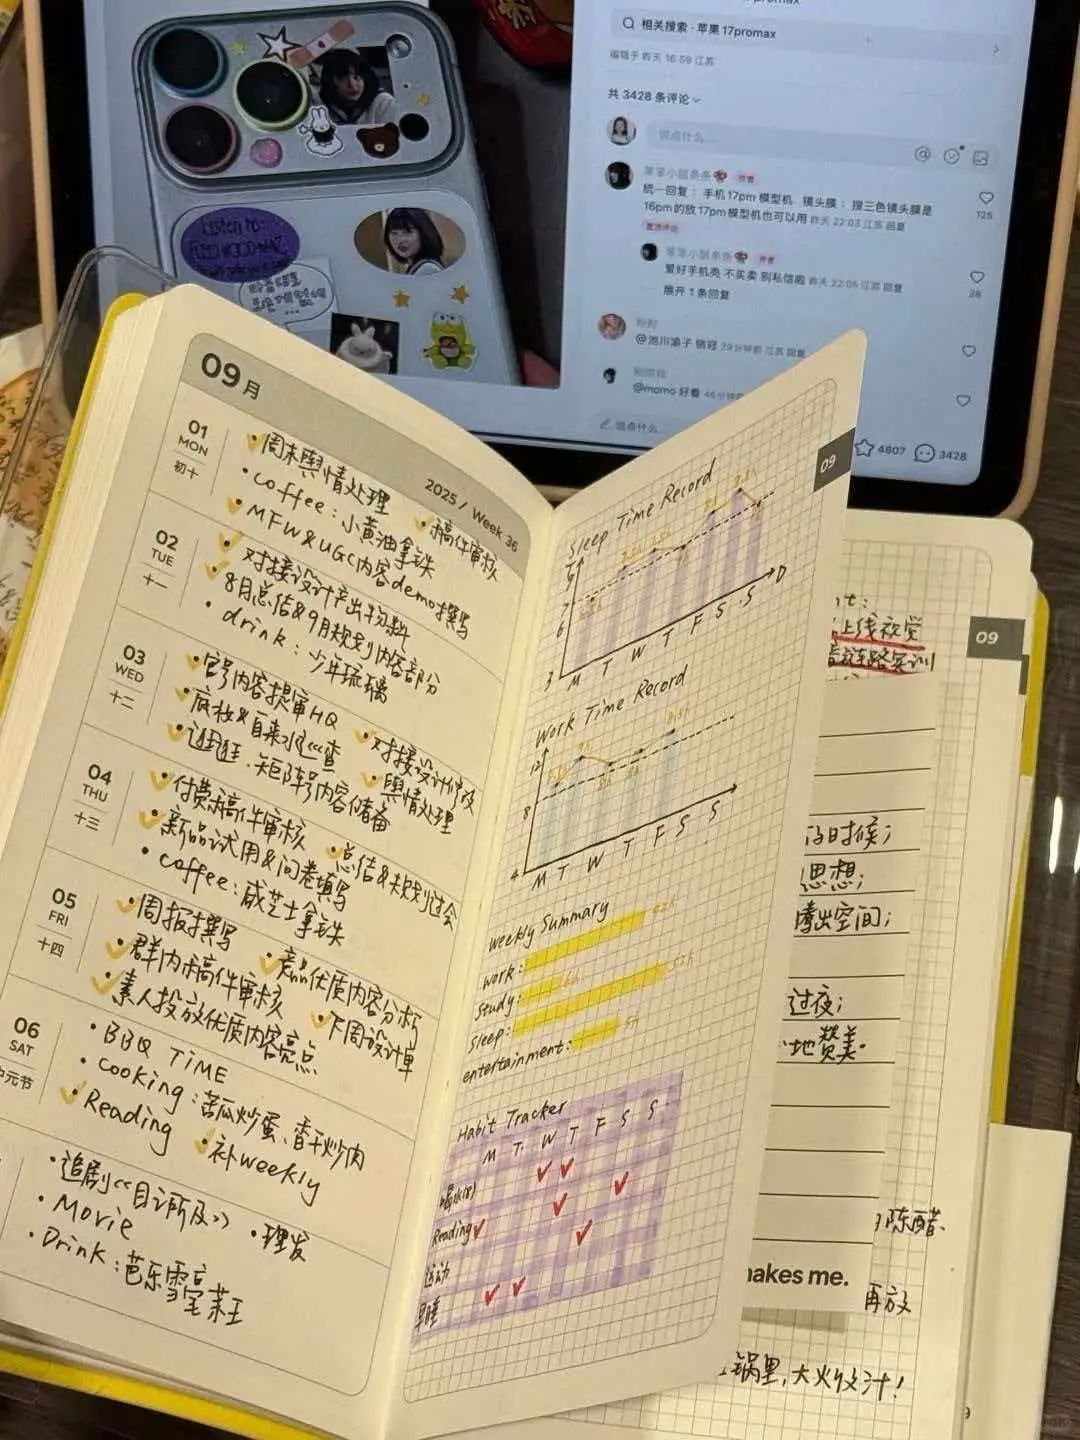 相关搜索·苹果17promax
编辑于 昨天 16:59 江苏
共 3428 条评论
说点什么...
笨笨小鼠条条
统一回复：手机17pm 模型机 镜头膜：搜三色镜头膜是
16pm的放17pm模型机也可以用 昨天 22:03 江苏 回复
125
置顶评论
爱好手机壳 不买卖 别私信啦 昨天 22:05 江苏 回复
28
展开 1 条回复
@池川渝子 锁冠 39分钟前 江苏 回复
@momo 好看
说点什么...
4807
3428
Listen to:
09月
2025 / Week 36
01
MON
初十
周末舆情处理
稿件审核
coffee：小黄油拿铁
MFW&UGC内容demo撰写
02
TUE
十一
对接设计产出物料
8月总结&9月规划内容部分
drink：少年琉璃
03
WED
十二
官号内容提审HQ
对接设计修改
底妆&自来水巡查
舆情处理
矩阵号内容储备
04
THU
十三
付费稿件审核
总结&规划过会
新品试用&问卷填写
coffee：咸芝士拿铁
05
FRI
十四
周报撰写
竞品优质内容分析
群内稿件审核
下周设计单
素人投放优质内容亮点
06
SAT
中元节
BBQ TiME
cooking：苦瓜炒蛋、香干炒肉
Reading
补weekly
追剧《目之所及》
理发
Movie
Drink：芭乐雪宝茉王
09
Sleep Time Record
9
7
6
3
M T W T F S S D
Work Time Record
12
8
4
M T W T F S S
Weekly Summary
work：
study：
sleep：
entertainment：
5h
Habit Tracker
M T W T F S S
Reading
运动
早睡
09
上线视觉
链路实训
的时候；
思想；
腾出空间；
过夜；
地赞美.
makes me.
陈醋.
再放
锅里，大火收汁！